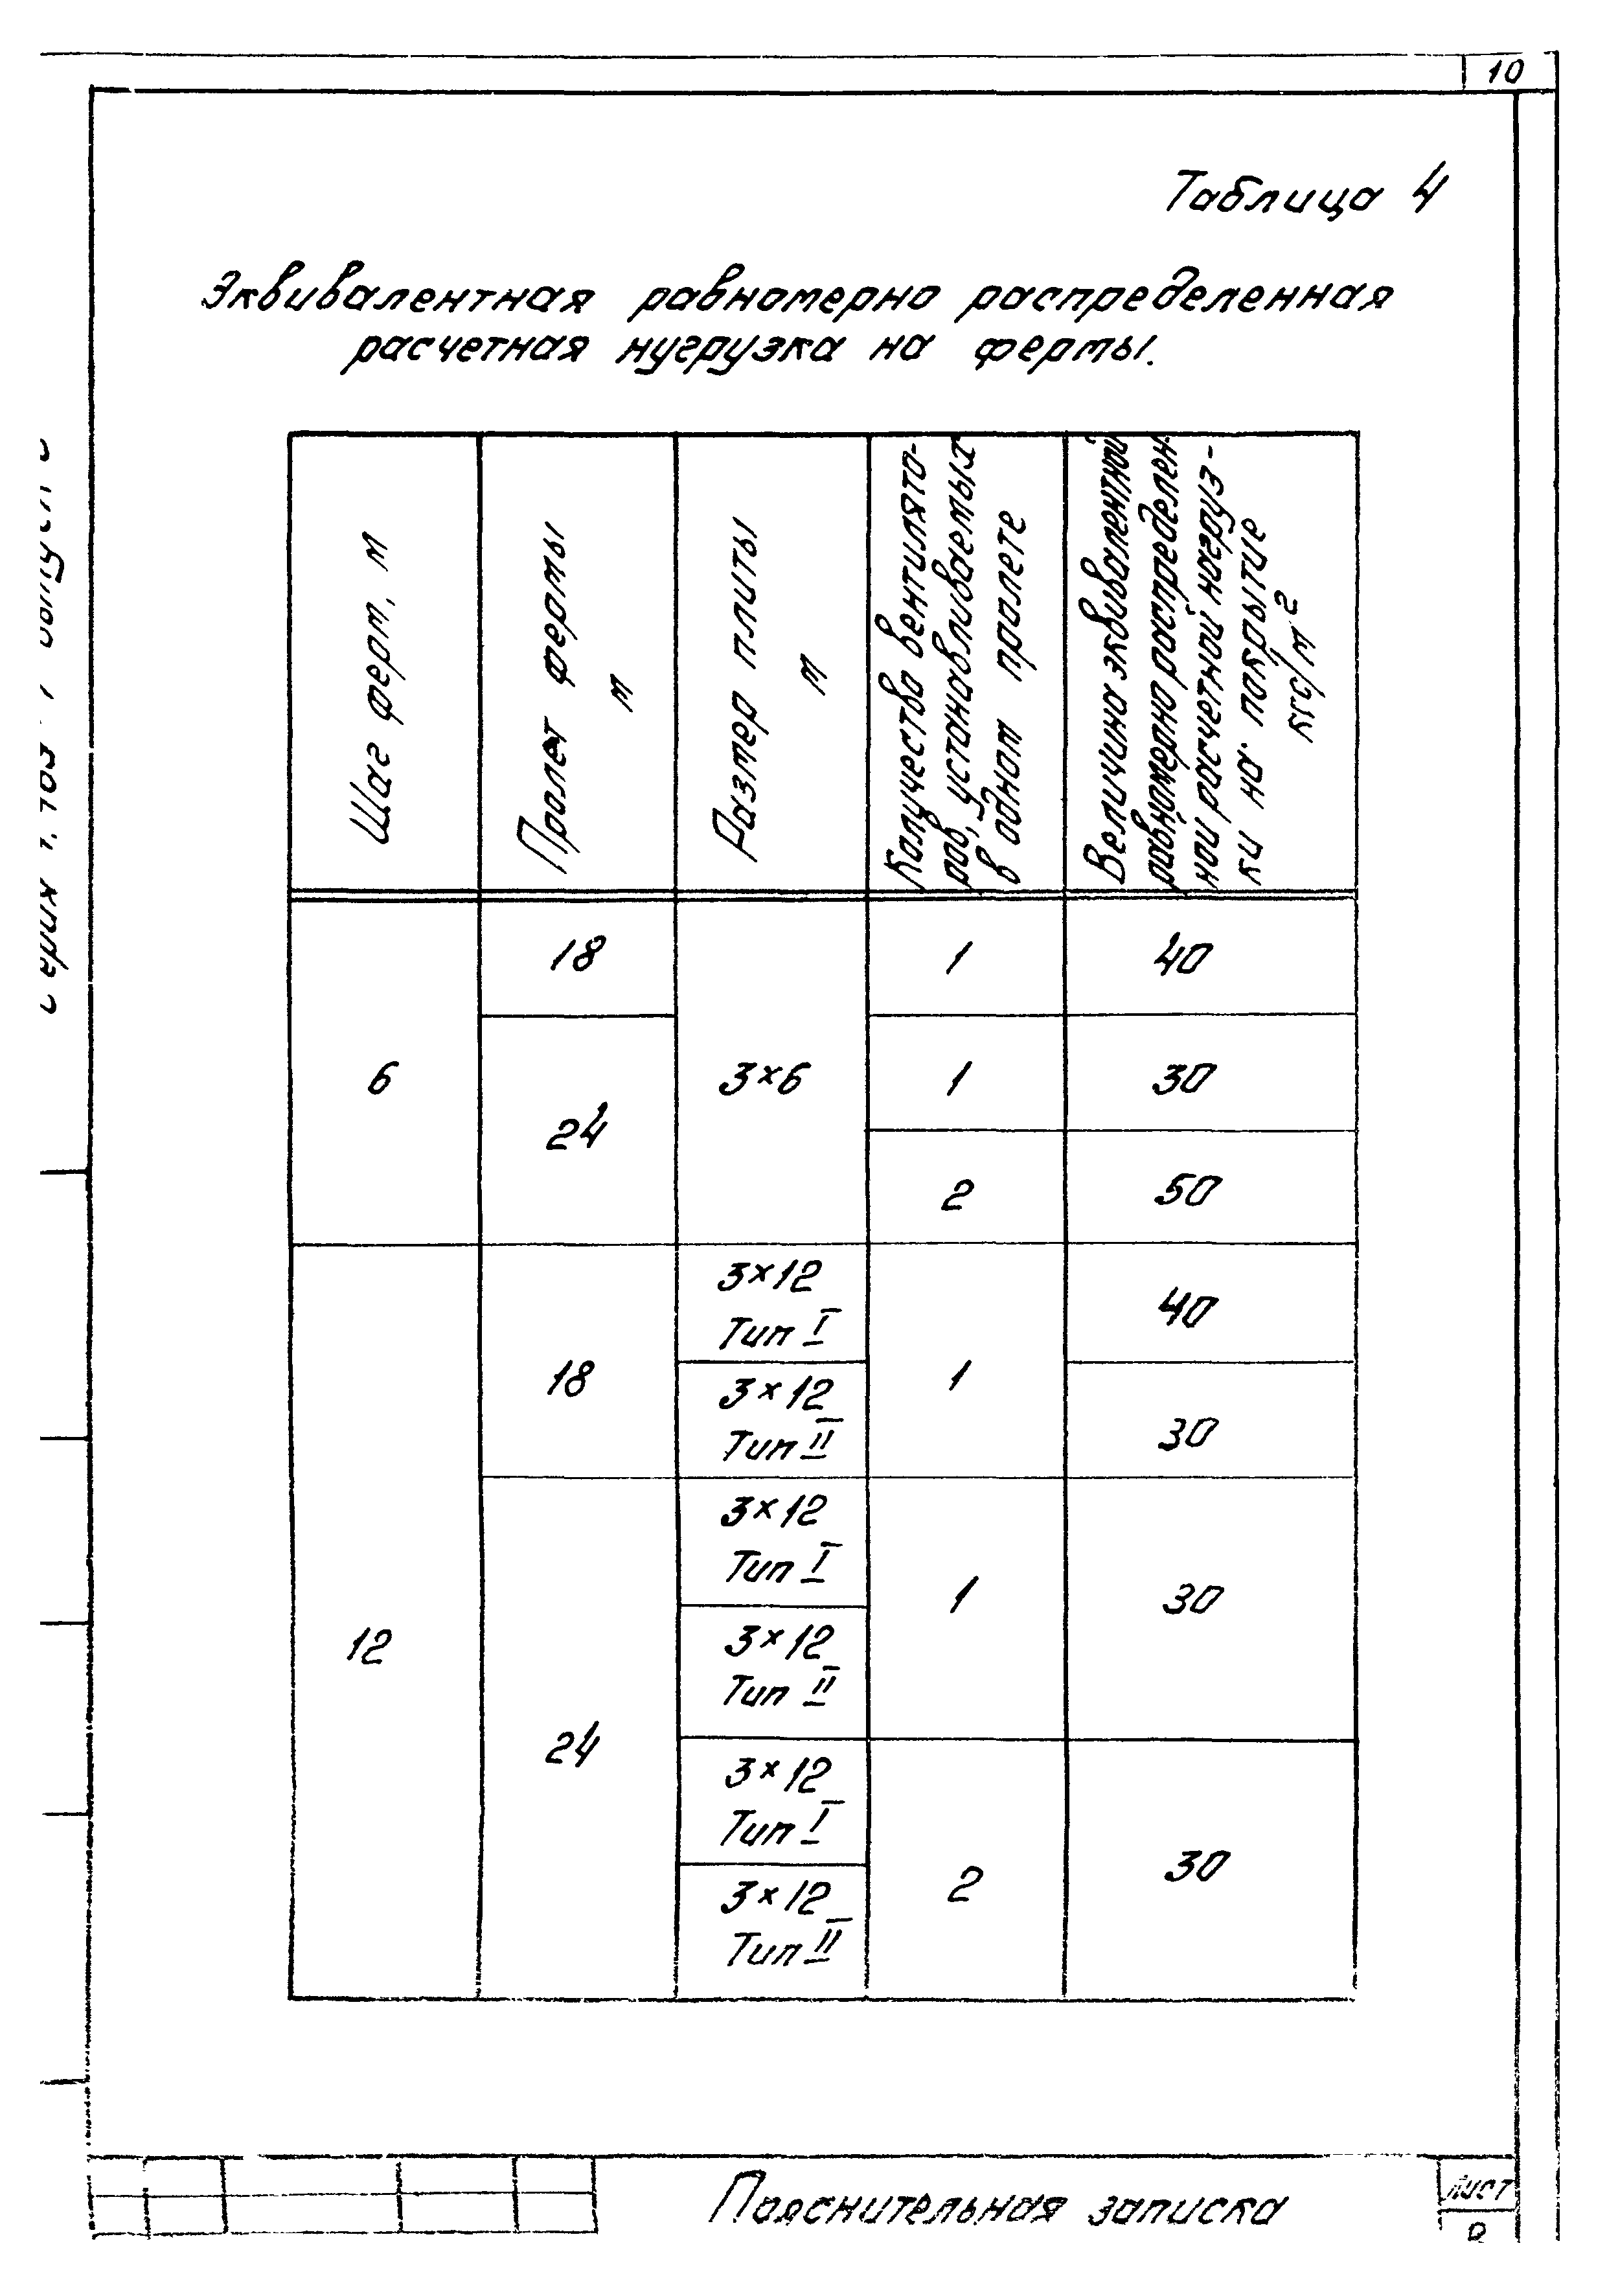 10
Таблица 4
Эквивалентная равномерно распределенная
расчетная нугрузка на фермы.
Шаг ферм, м
Пролет фермы
м
Размер плиты
м
Количество вентилято-
ров, устанавливаемых
в одном пролете
Величина эквивалентной
равномерно распределен-
ной расчетной нагруз-
ки на покрытие
кгс/м²
6
18
3×6
1
40
24
1
30
2
50
12
18
3×12
Тип I
1
40
3×12
Тип II
30
24
3×12
Тип I
1
30
3×12
Тип II
3×12
Тип I
2
30
3×12
Тип II
Пояснительная записка
Лист